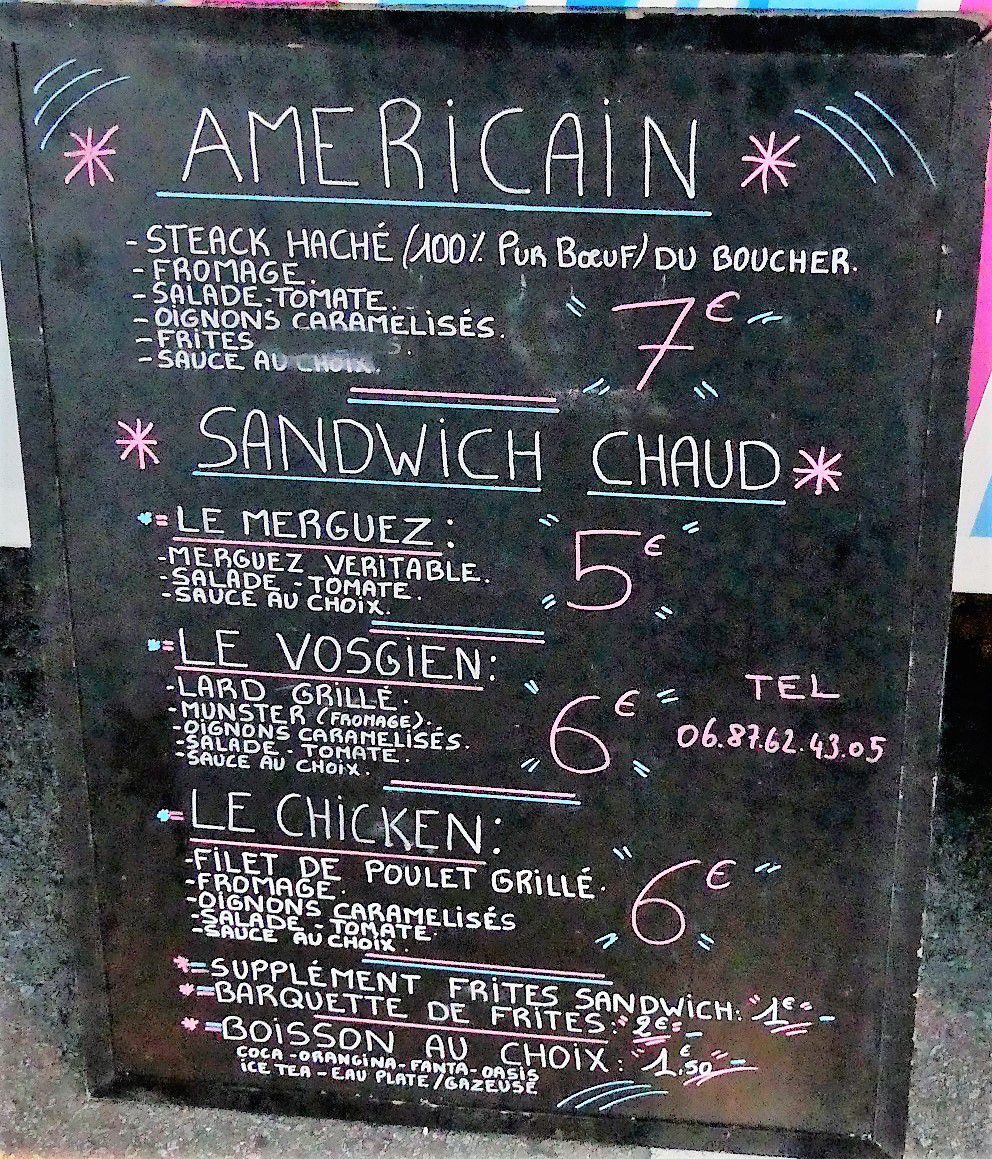 AMERiCAiN
- STEACK HACHÉ (100% PUR BŒUF) DU BOUCHER.
- FROMAGE.
- SALADE-TOMATE.
- OIGNONS CARAMELISÉS.
- FRITES
- SAUCE AU CHOIX.
7€
SANDWiCH CHAUD
LE MERGUEZ:
- MERGUEZ VERITABLE.
- SALADE - TOMATE.
- SAUCE AU CHOIX.
5€
LE VOSGIEN:
- LARD GRILLÉ.
- MUNSTER (FROMAGE).
- OIGNONS CARAMELISÉS.
- SALADE - TOMATE.
- SAUCE AU CHOIX.
6€
TEL
06.87.62.43.05
LE CHiCKEN:
- FILET DE POULET GRILLÉ.
- FROMAGE.
- OIGNONS CARAMELISÉS
- SALADE - TOMATE.
- SAUCE AU CHOIX.
6€
SUPPLÉMENT FRITES SANDWICH: 1€
BARQUETTE DE FRITES: 2€
BOISSON AU CHOIX: 1€.50
COCA - ORANGINA - FANTA - OASIS
ICE TEA - EAU PLATE/GAZEUSE